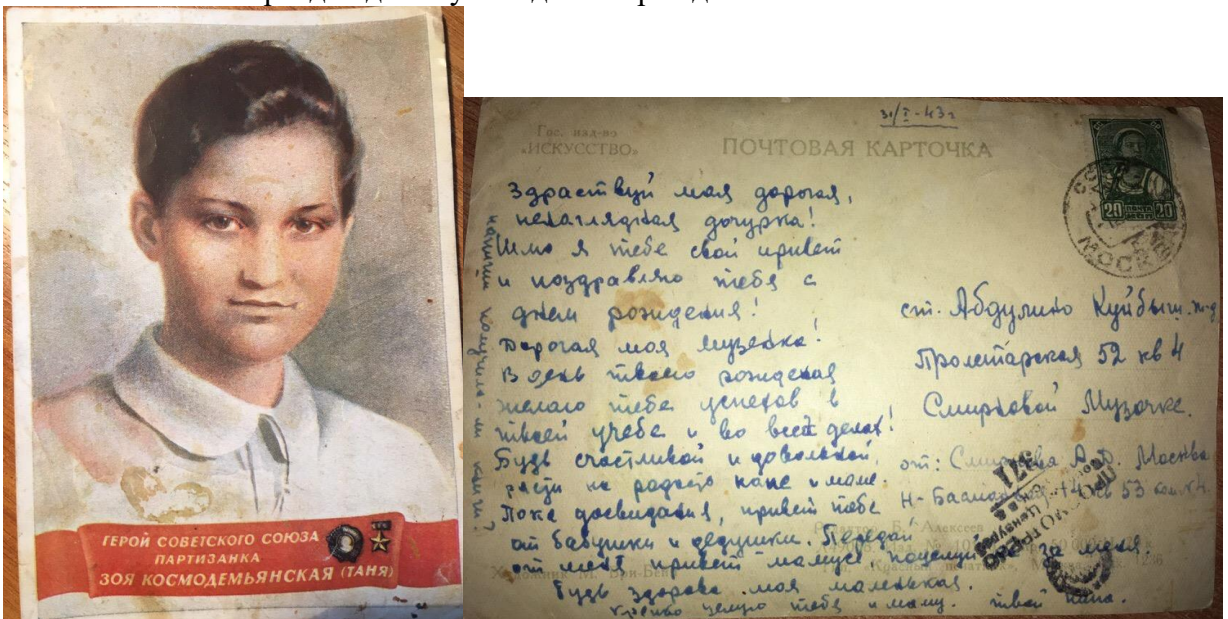 ГЕРОЙ СОВЕТСКОГО СОЮЗА
ПАРТИЗАНКА
ЗОЯ КОСМОДЕМЬЯНСКАЯ (ТАНЯ)
31/I-43г
Гос. изд-во
«ИСКУССТВО»
ПОЧТОВАЯ КАРТОЧКА
20 ПОЧТА 20
МОСКВА
Здраствуй моя дорогая,
ненаглядная дочурка!
Шлю я тебе свой привет
и поздравляю тебя с
днем рождения!
Дорогая моя Музечка!
В день твоего рождения
желаю тебе успехов в
твоей учебе и во всех делах!
Будь счастливой и довольной,
расти на радость папе и маме.
Пока досвидания, привет тебе
от бабушки и дедушки. Передай
от меня привет мамусе, поцелуй за меня.
Будь здорова моя маленькая.
Крепко целую тебя и маму. твой папа.
напиши получила-ли книги?
ст. Абдулино Куйбыш. ж-д
Пролетарская 52 кв 4
Смирновой Музочке.
от: Смирнова А. Москва
Н-Басманная 14 кв 53
371
Художник М.
Б. Алексеев